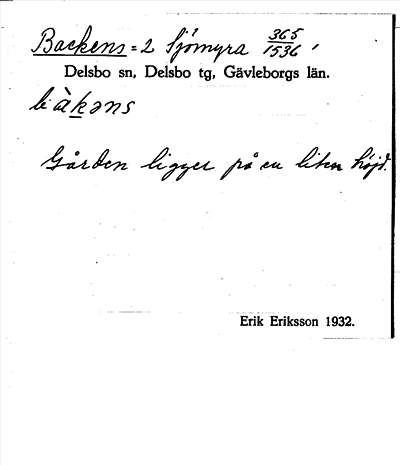 Backens = 2 Sjömyra 365/1536
Delsbo sn, Delsbo tg, Gävleborgs län.
Gården ligger på en liten höjd.
Erik Eriksson 1932.